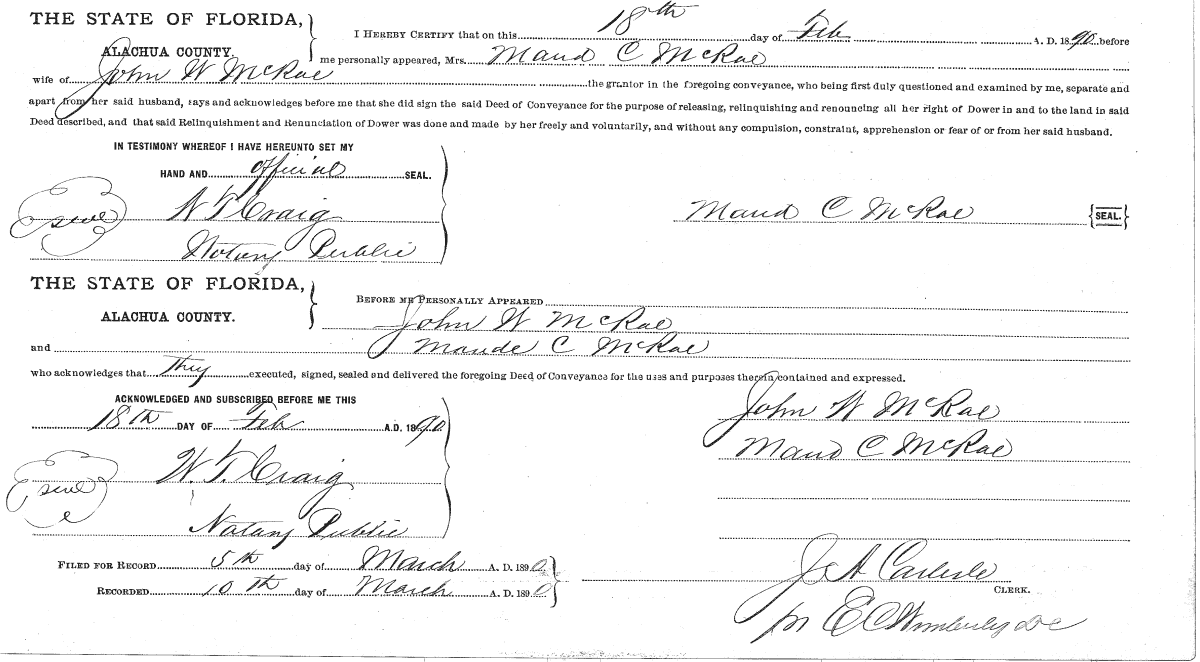 THE STATE OF FLORIDA,
ALACHUA COUNTY.
I HEREBY CERTIFY that on this 18th day of Feb A. D. 1890 before
me personally appeared, Mrs. Maud C McRae
wife of John W McRae the grantor in the foregoing conveyance, who being first duly questioned and examined by me, separate and
apart from her said husband, says and acknowledges before me that she did sign the said Deed of Conveyance for the purpose of releasing, relinquishing and renouncing all her right of Dower in and to the land in said
Deed described, and that said Relinquishment and Renunciation of Dower was done and made by her freely and voluntarily, and without any compulsion, constraint, apprehension or fear of or from her said husband.
IN TESTIMONY WHEREOF I HAVE HEREUNTO SET MY
HAND AND official SEAL.
W T Craig
Notary Public
Maud C McRae {SEAL.}
THE STATE OF FLORIDA,
ALACHUA COUNTY.
BEFORE ME PERSONALLY APPEARED
John W McRae
and Maude C McRae
who acknowledges that they executed, signed, sealed and delivered the foregoing Deed of Conveyance for the uses and purposes therein contained and expressed.
ACKNOWLEDGED AND SUBSCRIBED BEFORE ME THIS
18th DAY OF Feb A.D. 1890
W. T. Craig
Notary Public
John W McRae
Maud C McRae
FILED FOR RECORD 5th day of March A. D. 1890
RECORDED 10th day of March A. D. 1890
J A Carlisle
CLERK.
pr E C Wimberly DC